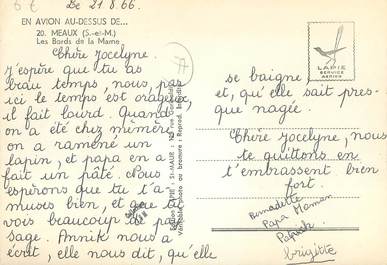 6 €
De 21.8.66.
EN AVION AU-DESSUS DE...
20. MEAUX (S.-et-M.)
Les Bords de la Marne
Chère Jocelyne.
J'espère que tu as
beau temps, nous, pas
ici le temps est orageux,
il fait lourd. Quand
on a été chez mémère,
on a ramené un
lapin, et papa en a
fait un pâté. Nous
espérons que tu t'a-
muses bien, et que tu
vois beaucoup de pay-
sage. Annik nous a
écrit, elle nous dit, qu'elle
LAPIE
SERVICE
AERIEN
se baigne,
et, qu'elle sait pres-
que nagée.
Chère Jocelyne, nous
te quittons en
t'embrassent bien
fort.
Bernadette
Papa Maman
Patrick
brigitte